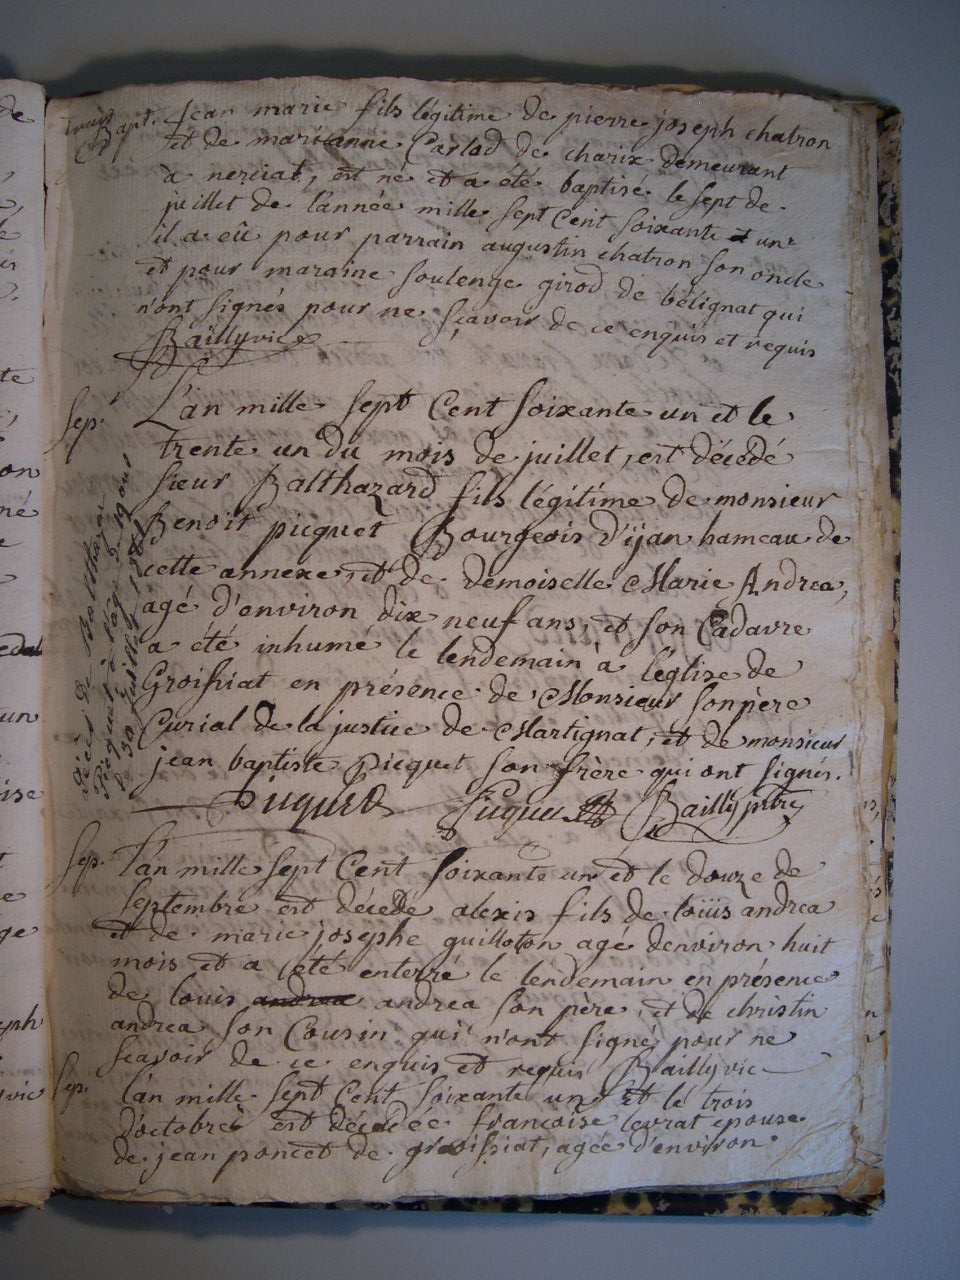 Bapt.
Jean marie fils légitime de pierre joseph chatron
et de marianne Carlod de charix demeurant
à nerciat, est né et a été baptisé le sept de
juillet de lannée mille sept Cent soixante et un
il a eû pour parrain augustin chatron son oncle
et pour maraine soulenge girod de bélignat qui
n'ont signés pour ne sçavoir de ce enquis et requis
Bailly vic
Sep.
L'an mille sept Cent soixante un et le
trente un du mois de juillet, est décédé
sieur Balthazard fils légitime de monsieur
Benoit picquet Bourgeois d'ijan hameau de
cette annexe, et de demoiselle Marie Andrea,
agé d'environ dix neuf ans, et son Cadavre
a été inhumé le lendemain à léglise de
Groissiat en présence de Monsieur son père
Curial de la justice de Martignat, et de monsieur
jean baptiste Picquet son frère qui ont signés.
Picquet Picquet Bailly ptre
décès de Balthazar
Picquet à l'age de 19 ans
le 30 juillet 1761
Sep.
L'an mille sept Cent soixante un et le douze de
septembre est décédé alexis fils de loüis andrea
et de marie josephe guilloton agé denviron huit
mois et a été enterré le lendemain en présence
de louis andrea andrea son père, et de christin
andrea son Cousin qui n'ont signé pour ne
scavoir de ce enquis et requis Bailly vic
Sep.
l'an mille sept Cent soixante un et le trois
d'octobre est décédée françoise levrat epouse
de jean poncet de groissiat, agée d'environ